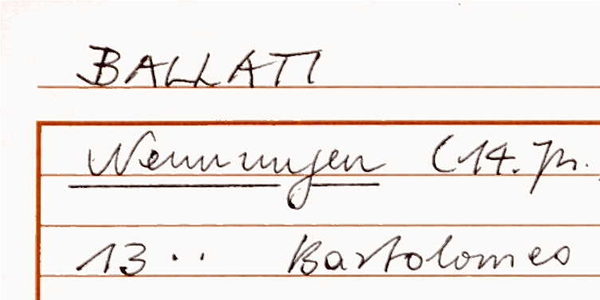 BALLATI
Nennungen (14. Jh.
13.. Bartolomeo